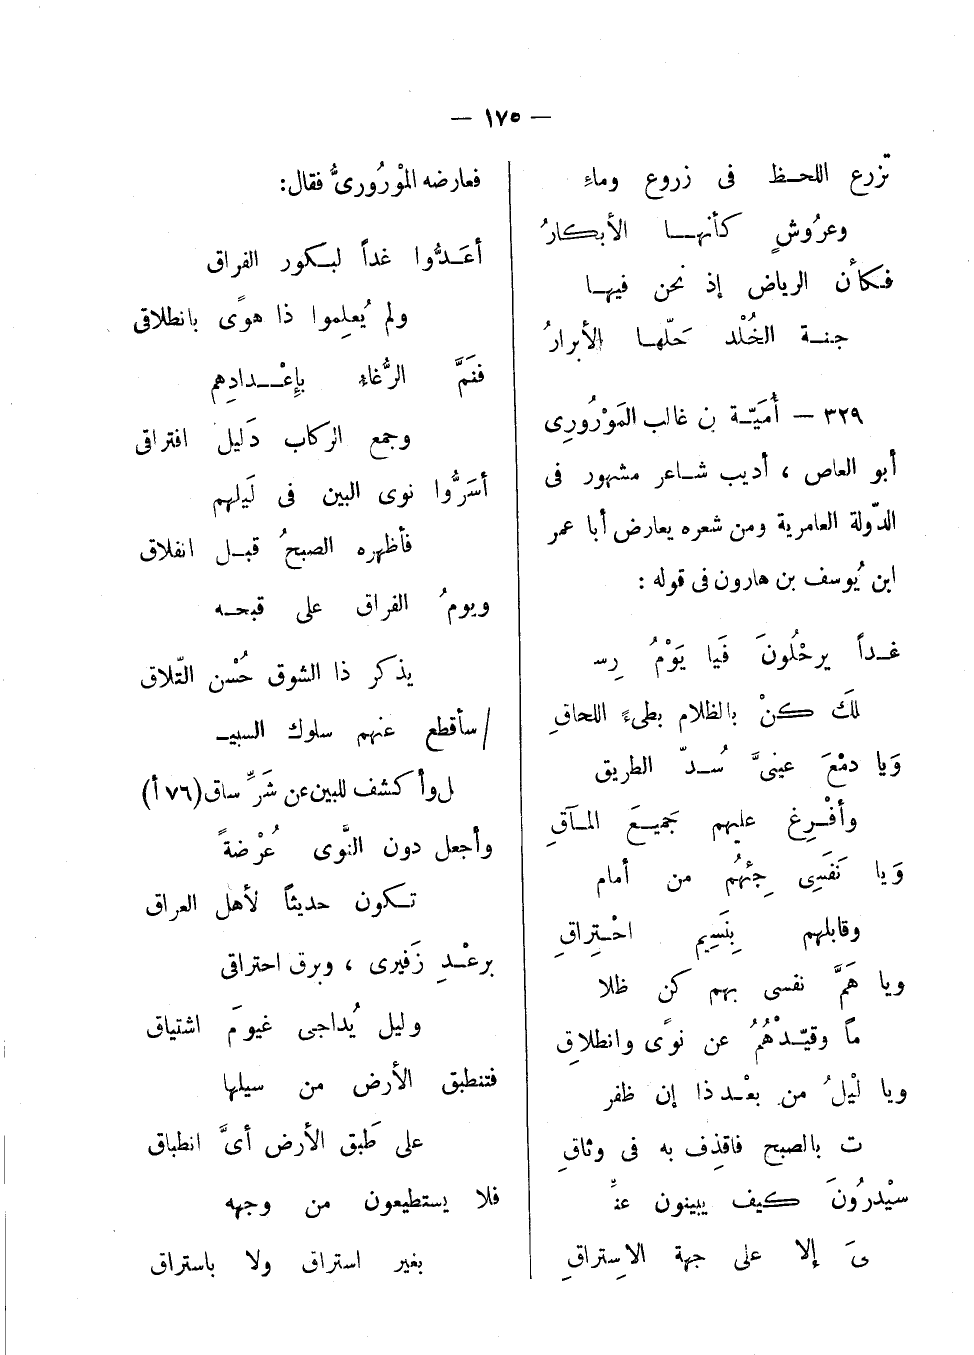 — ١٧٥ —
تزرع اللحظ فى زروع وماءِ
وعرُوشٍ كأنها الأبكارُ
فكأن الرياض إذ نحن فيها
جنة الخُلْد حَلّها الأبرارُ
٣٢٩ — أُمَيّة بن غالب المَوْرُورِى
أبو العاص ، أديب شاعر مشهور فى
الدّولة العامرية ومن شعره يعارض أبا عمر
ابن يُوسف بن هارون فى قوله :
غداً يرحْلُونَ فَيا يَوْمُ رِسـ
لكَ كنْ بالظلام بطىءَ اللحاقِ
وَيا دمْعَ عينىَّ سُدّ الطريق
وأفْرِغ عليهم جَمِيعَ المآقِ
وَيا نَفَسِى جِئْهُم من أمام
وقابلهم بِنَسِيم احْتِراقِ
ويا هَمَّ نفسى بهم كن ظلا
ماً وقيّدْهُمُ عن نوًى وانطلاقِ
ويا لْيلُ من بعْد ذا إن ظفر
ت بالصبح فاقذِف به فى وثاقِ
سيْدرُونَ كيف يبينون عنِّـ
ىَ إلا على جهة الاِستراقِ
فعارضه المْورُورىُّ فقال:
أعَدُّوا غداً لبكور الفراق
ولم يُعلِموا ذا هوًى بانطلاقى
فنَمَّ الرُّغاء بإِعْدادِهم
وجمع الركاب دَليل افتراقى
أسَرُّوا نوى البين فى لَيلهم
فأظهره الصبحُ قبل انفلاق
ويومُ الفراق على قبحه
يذكر ذا الشوق حُسْن التّلاق
/ سأقطع عنهم سلوك السبيـ
ل وأكشف للبين عن شَرِّ ساق (٧٦ أ)
وأجعل دون النَّوى عُرْضةً
تكون حديثاً لأهل العراق
برعْدِ زَفيرى ، وبرق احتراقى
وليل يُداجى غيومَ اشتياق
فتنطبق الأرض من سيلها
على طَبق الأرض أىَّ انطباق
فلا يستطيعون من وجهه
بغير استراق ولا باستراق